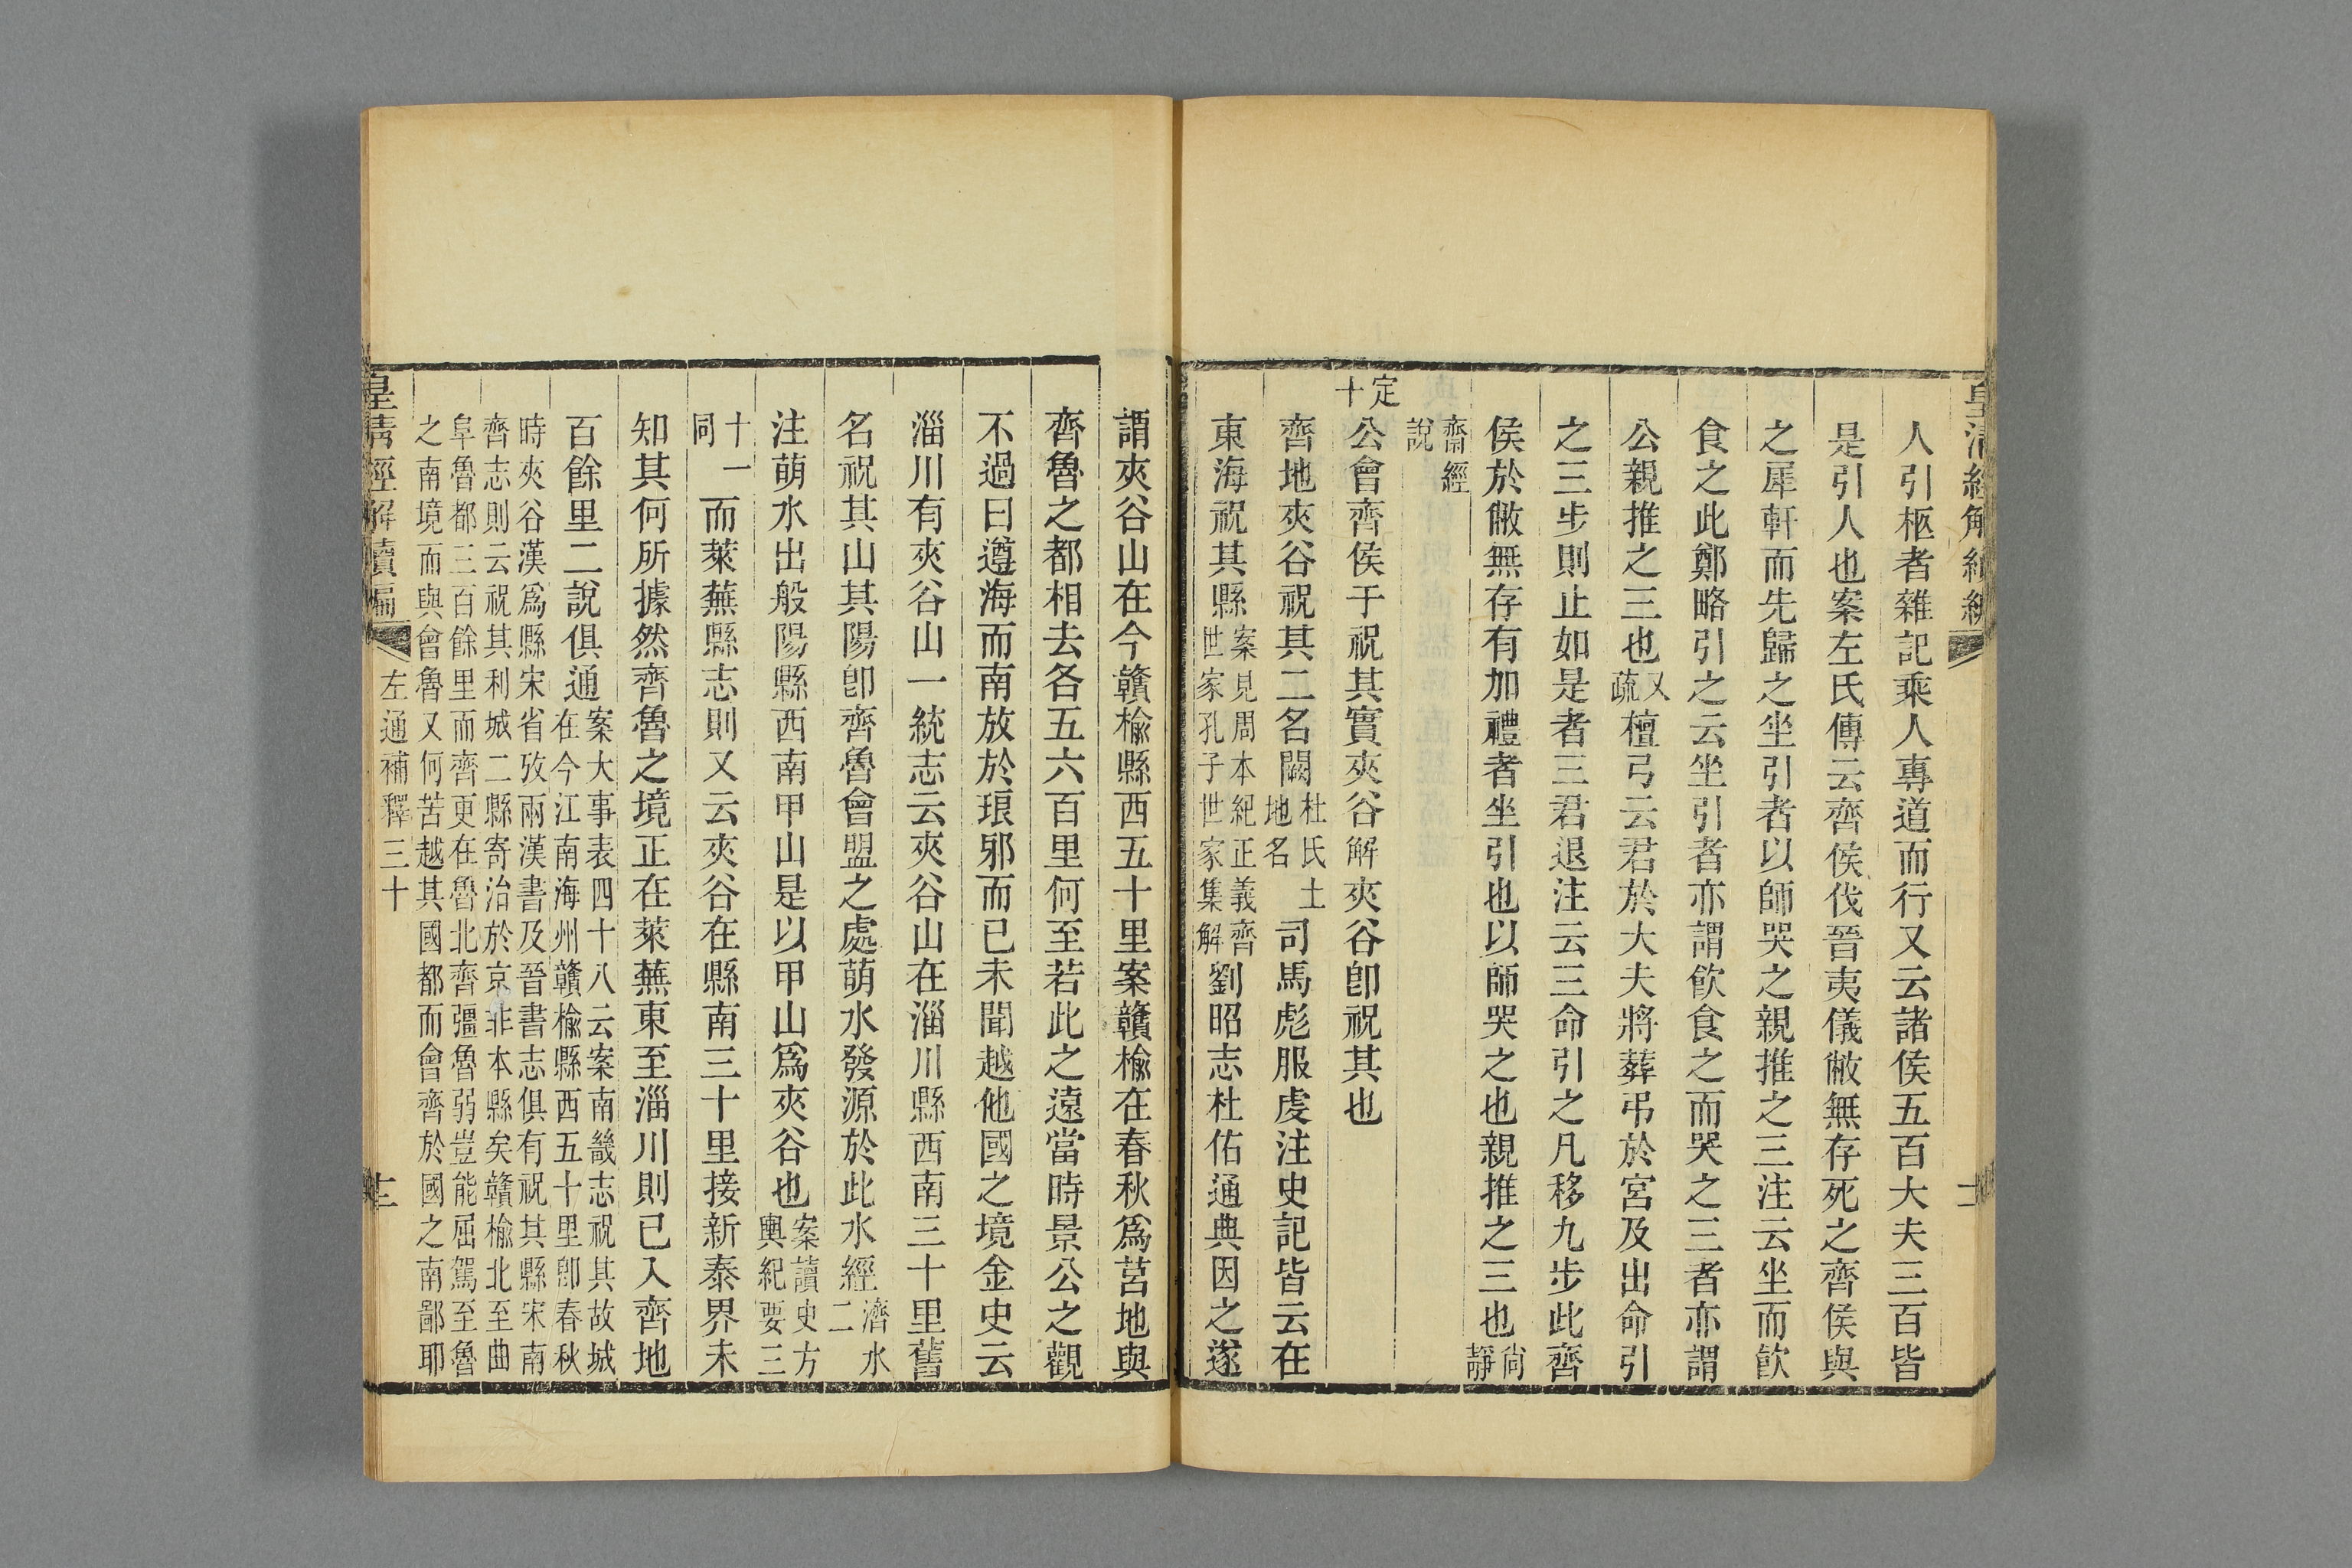 人引柩者雜記乘人專道而行又云諸侯五百大夫三百皆
是引人也案左氏傳云齊侯伐晉夷儀敝無存死之齊侯與
之犀軒而先歸之坐引者以師哭之親推之三注云坐而飮
食之此鄭略引之云坐引者亦謂飮食之而哭之三者亦謂
公親推之三也又疏檀弓云君於大夫將葬弔於宮及出命引
之三步則止如是者三君退注云三命引之凡移九步此齊
侯於敝無存有加禮者坐引也以師哭之也親推之三也尙靜
齋經說
定十公會齊侯于祝其實夾谷解夾谷卽祝其也
齊地夾谷祝其二名闕杜氏土地名司馬彪服虔注史記皆云在
東海祝其縣案見周本紀正義齊世家孔子世家集解劉昭志杜佑通典因之遂
謂夾谷山在今贛榆縣西五十里案贛榆在春秋爲莒地與
齊魯之都相去各五六百里何至若此之遠當時景公之觀
不過曰遵海而南放於琅邪而已未聞越他國之境金史云
淄川有夾谷山一統志云夾谷山在淄川縣西南三十里舊
名祝其山其陽卽齊魯會盟之處萌水發源於此水經濟水二
注萌水出般陽縣西南甲山是以甲山爲夾谷也案讀史方輿紀要三
十一同而萊蕪縣志則又云夾谷在縣南三十里接新泰界未
知其何所據然齊魯之境正在萊蕪東至淄川則已入齊地
百餘里二說俱通案大事表四十八云案南畿志祝其故城在今江南海州贛榆縣西五十里卽春秋
時夾谷漢爲縣宋省攷兩漢書及晉書志俱有祝其縣宋南齊志則云祝其利城二縣寄治於京非本縣矣贛榆北至曲
阜魯都三百餘里而齊更在魯北齊彊魯弱豈能屈駕至魯之南境而與會魯又何苦越其國都而會齊於國之南鄙耶
皇清經解續編
左通補釋三十